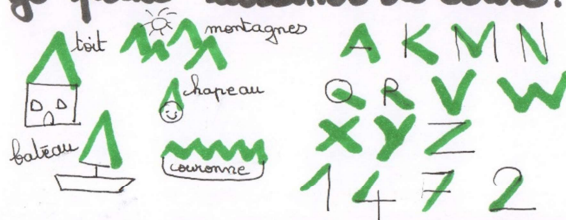 toit
montagnes
chapeau
bateau
couronne
A K M N
Q R V W
X Y Z
1 4 7 2